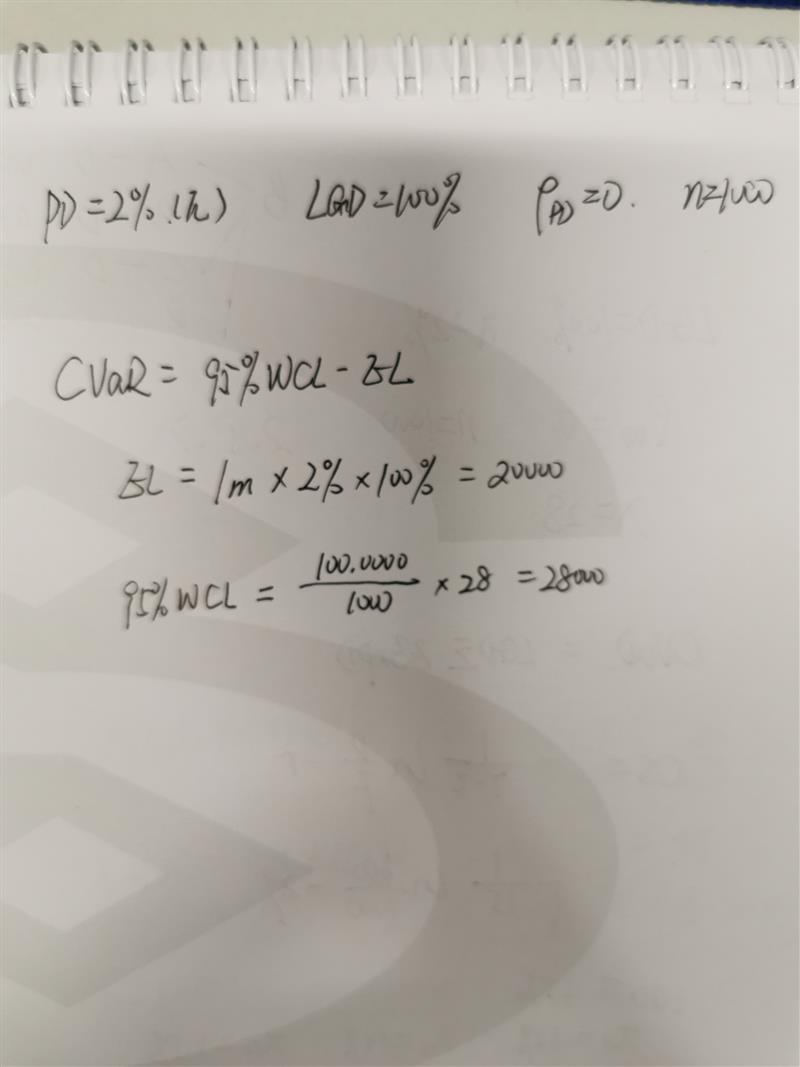 PD=2%.(π) LGD=100% ρPD=0. n=1000
CVaR = 95%WCL - EL
EL = 1m × 2% × 100% = 20000
95%WCL = 100.0000/1000 × 28 = 28000